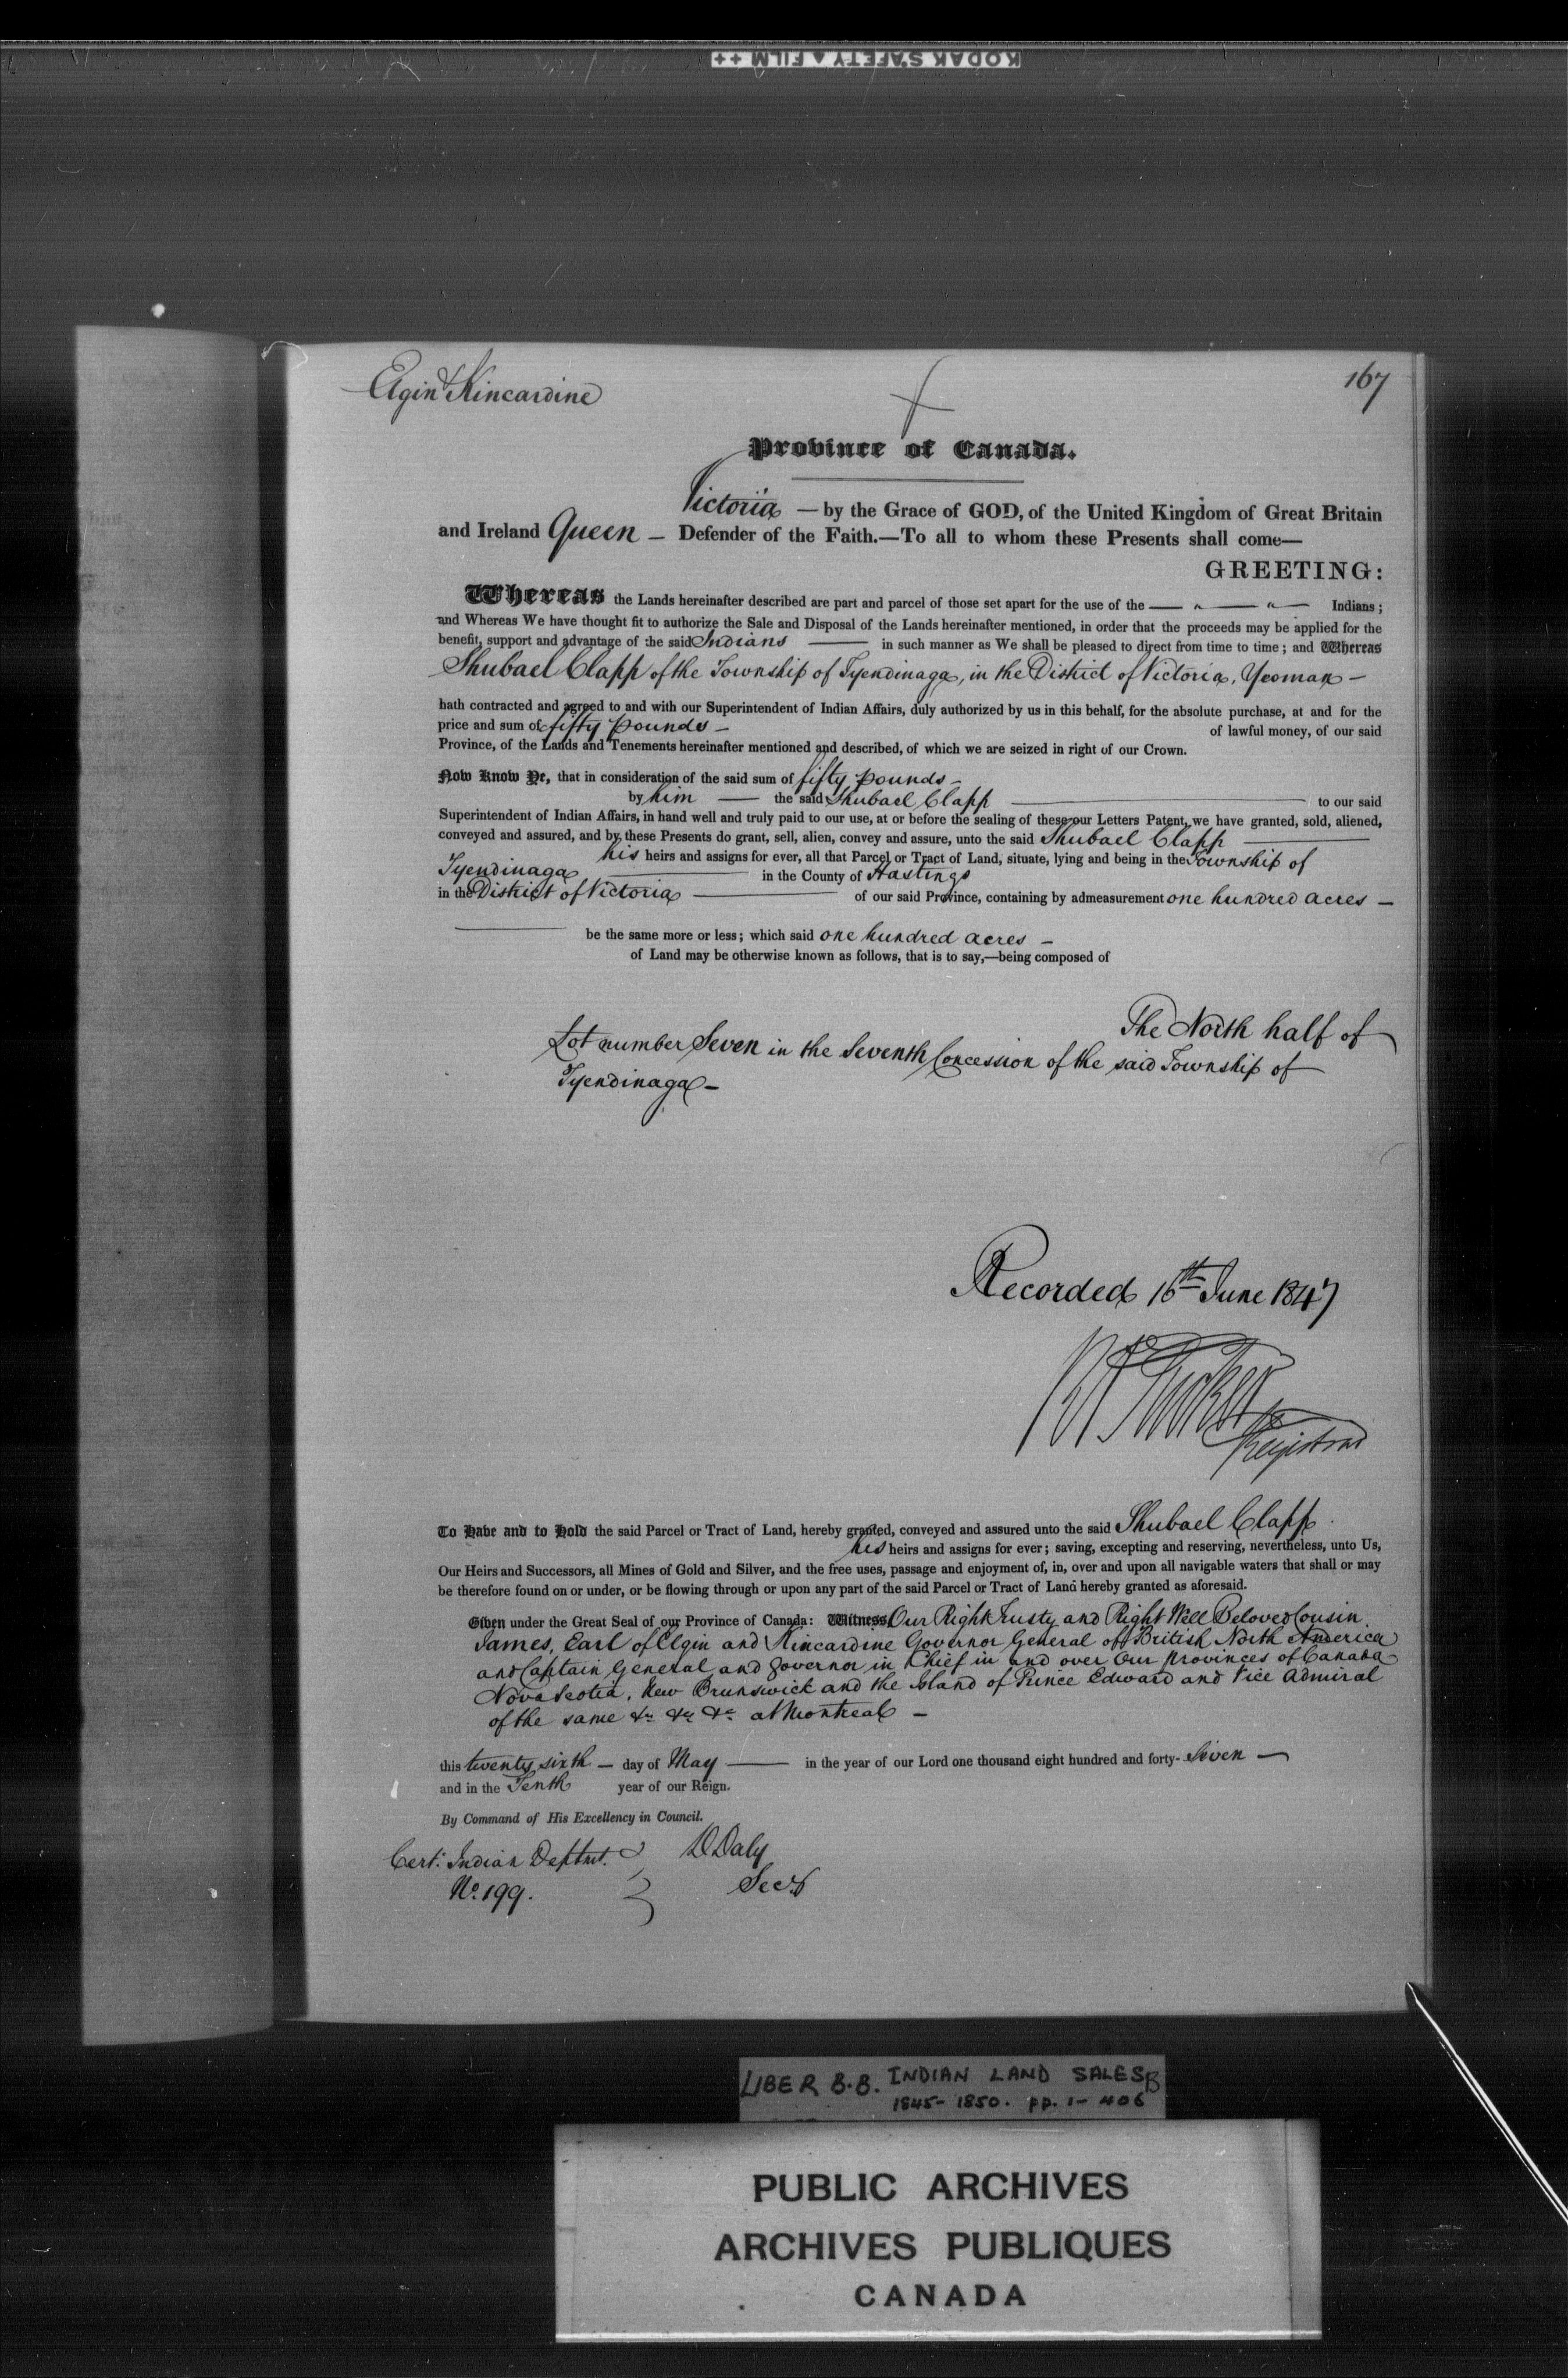 KODAK SAFETY FILM ++
Elgin & Kincardine
167
Province of Canada.
Victoria — by the Grace of GOD, of the United Kingdom of Great Britain
and Ireland Queen — Defender of the Faith.—To all to whom these Presents shall come—
GREETING:
Whereas the Lands hereinafter described are part and parcel of those set apart for the use of the — " — " — Indians;
and Whereas We have thought fit to authorize the Sale and Disposal of the Lands hereinafter mentioned, in order that the proceeds may be applied for the
benefit, support and advantage of the said Indians — in such manner as We shall be pleased to direct from time to time; and Whereas
Shubael Clapp of the Township of Tyendinaga, in the District of Victoria, Yeoman —
hath contracted and agreed to and with our Superintendent of Indian Affairs, duly authorized by us in this behalf, for the absolute purchase, at and for the
price and sum of fifty pounds — of lawful money, of our said
Province, of the Lands and Tenements hereinafter mentioned and described, of which we are seized in right of our Crown.
Now Know Ye, that in consideration of the said sum of fifty pounds —
by him — the said Shubael Clapp — to our said
Superintendent of Indian Affairs, in hand well and truly paid to our use, at or before the sealing of these our Letters Patent, we have granted, sold, aliened,
conveyed and assured, and by these Presents do grant, sell, alien, convey and assure, unto the said Shubael Clapp —
his heirs and assigns for ever, all that Parcel or Tract of Land, situate, lying and being in the Township of
Tyendinaga — in the County of Hastings
in the District of Victoria — of our said Province, containing by admeasurement one hundred acres —
— be the same more or less; which said one hundred acres —
of Land may be otherwise known as follows, that is to say,—being composed of
The North half of
Lot number Seven in the Seventh Concession of the said Township of
Tyendinaga —
Recorded 16th June 1847
Registrar
To Have and to Hold the said Parcel or Tract of Land, hereby granted, conveyed and assured unto the said Shubael Clapp
his heirs and assigns for ever; saving, excepting and reserving, nevertheless, unto Us,
Our Heirs and Successors, all Mines of Gold and Silver, and the free uses, passage and enjoyment of, in, over and upon all navigable waters that shall or may
be therefore found on or under, or be flowing through or upon any part of the said Parcel or Tract of Land hereby granted as aforesaid.
Given under the Great Seal of our Province of Canada: Witness Our Right Trusty and Right Well Beloved Cousin
James, Earl of Elgin and Kincardine Governor General of British North America
and Captain General and Governor in Chief in and over Our provinces of Canada
Nova Scotia, New Brunswick and the Island of Prince Edward and Vice Admiral
of the same &c &c &c at Montreal —
this twenty sixth — day of May — in the year of our Lord one thousand eight hundred and forty-Seven —
and in the Tenth year of our Reign.
By Command of His Excellency in Council.
Cert: Indian Deptmt. D Daly
No. 199. Secy
LIBER B.B. INDIAN LAND SALES B
1845-1850. pp. 1-406
PUBLIC ARCHIVES
ARCHIVES PUBLIQUES
CANADA